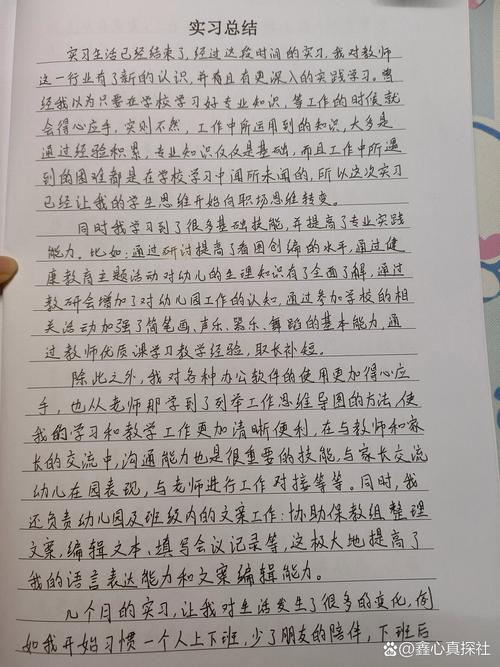 实习总结
实习生活已经结束了,经过这段时间的实习,我对教师
这一行业有了新的认识,并有且有更深入的实践学习。曾
经我以为只要在学校学习好专业知识,等工作的时候就
会得心应手,实则不然,工作中所运用到的知识,大多是
通过经验积累,专业知识仅仅是基础,而且工作中所遇
到的困难都是在学校学习中闻所未闻的,所以这次实习
已经让我的学生思维开始向职场思维转变。
同时我学习到了很多基础技能,并提高了专业实践
能力。比如,通过研讨提高了看图创编的水平,通过健
康教育主题活动对幼儿的生理知识有了全面了解,通过
教研会增加了对幼儿园工作的认知,通过参加学校的相
关活动加强了简笔画、声乐、器乐、舞蹈的基本能力,通
过教师优质课学习教学经验,取长补短。
除此之外,我对各种办公软件的使用更加得心应
手,也从老师那学到了列举工作思维导图的方法,使
我的学习和教学工作更加清晰便利,在与教师和家
长的交流中,沟通能力也是很重要的技能,与家长交流
幼儿在园表现,与老师进行工作对接等等。同时,我
还负责幼儿园及班级内的文案工作:协助保教组整理
文案,编辑文本、填写会议记录等,这极大地提高了
我的语言表达能力和文案编辑能力。
几个月的实习,让我对生活发生了很多的变化,例
如我开始习惯一个人上下班,少了朋友的陪伴,下班后
@鑫心真探社